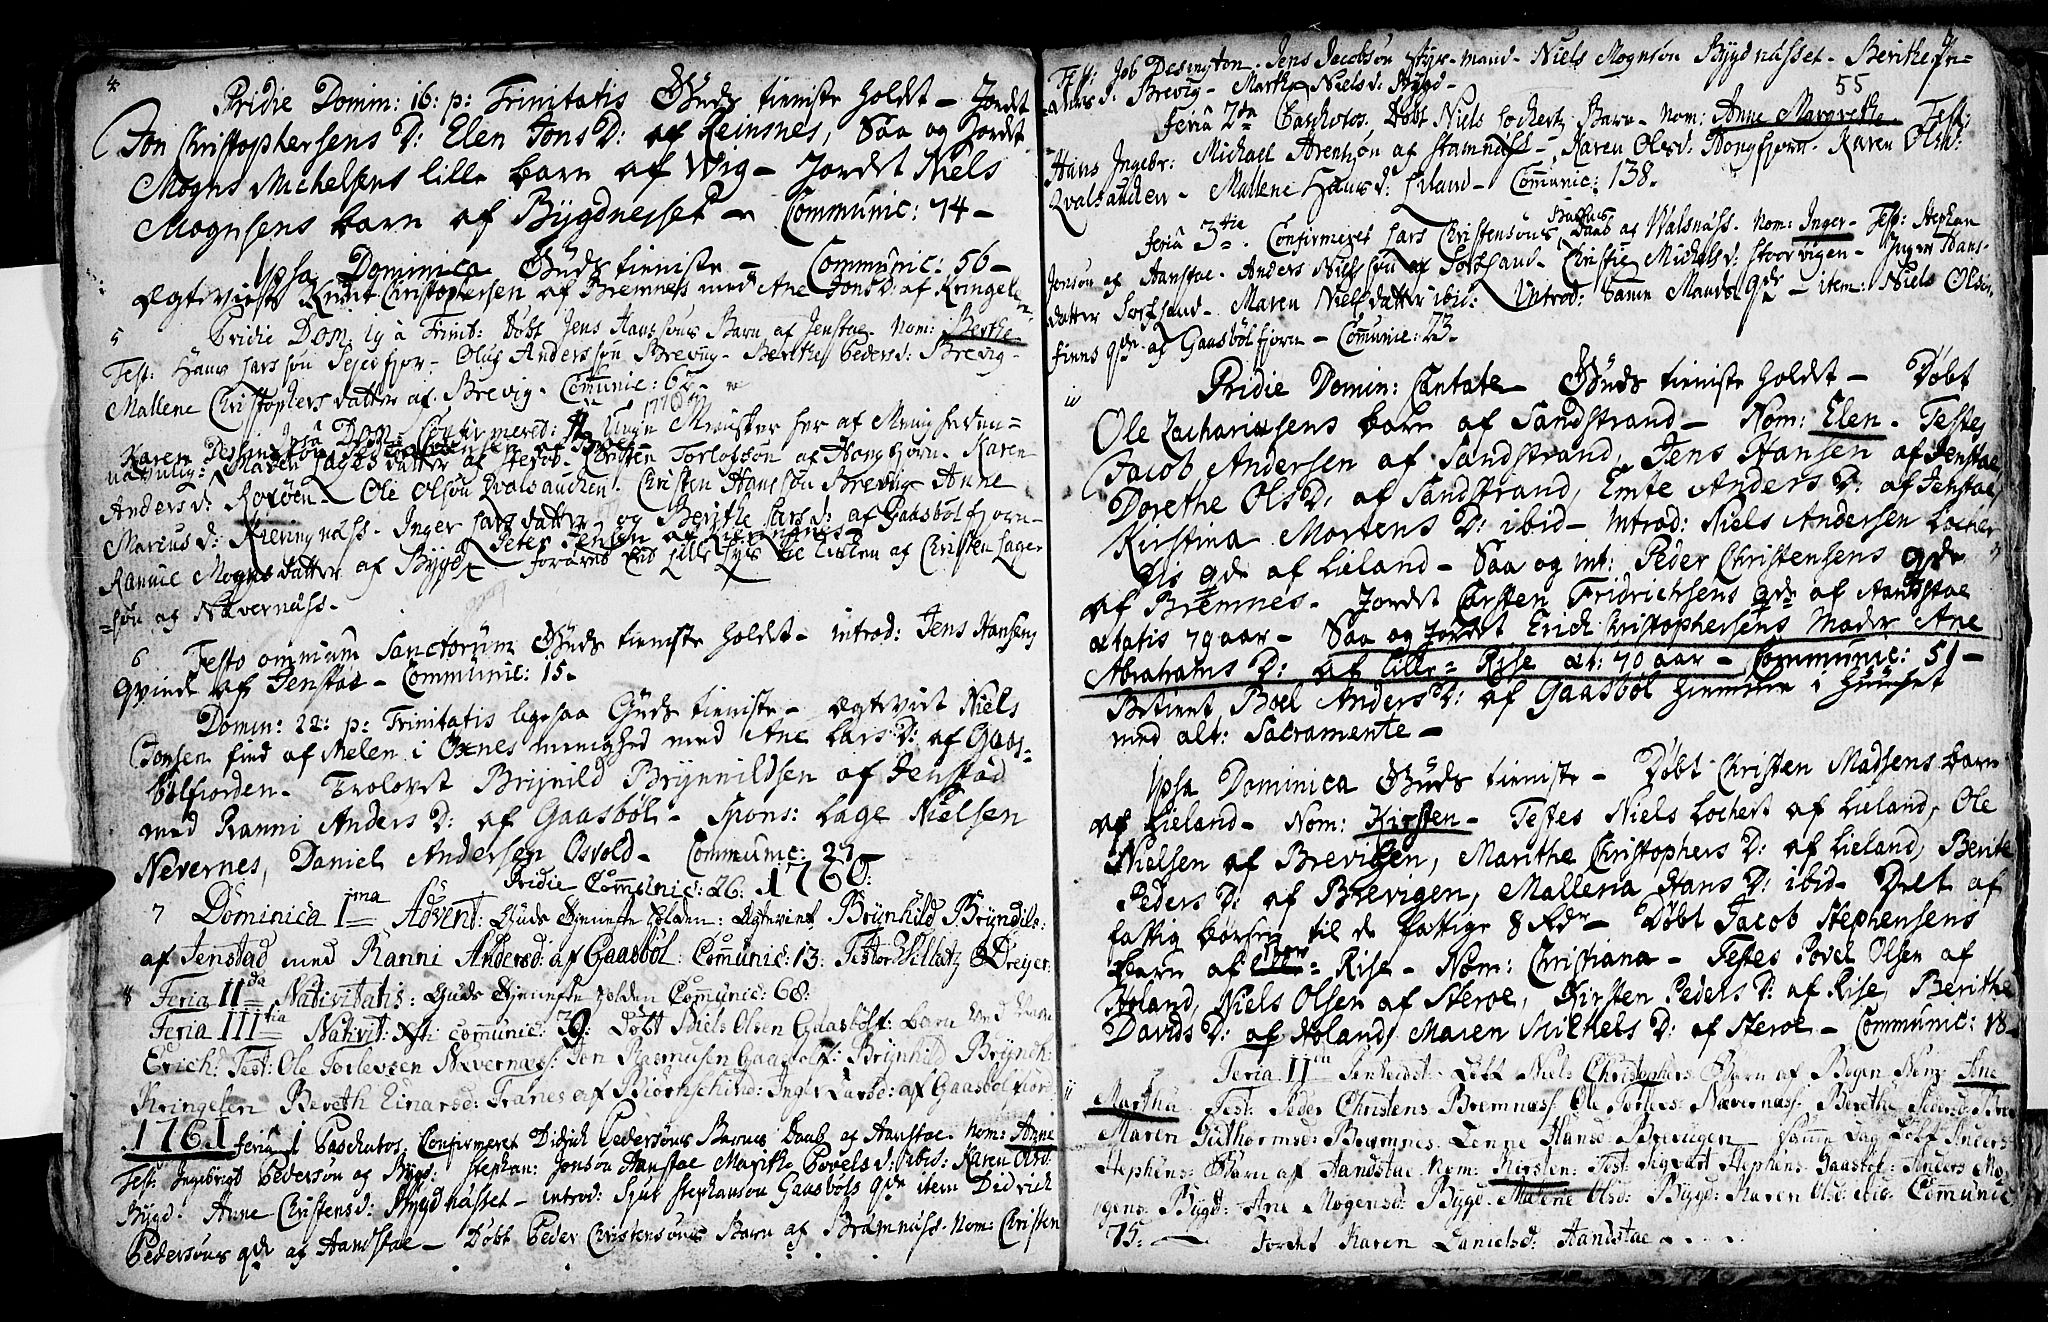 4
Pridie Domin: 16: p: Trinitatis Guds tieniste holdt — Jordet
Jon Christophersens D: Elen Jons D: af Reinsnes, Saa og Jordet
Mogns Michelsens lille barn af Wig — Jordet Niels
Mognsens barn af Bygdnesset — Communic: 74 —
Ipsa Dominica Guds tieniste — Communic: 56 —
Ægtviest Knut Christophersen af Bremnes med Ane Jons D: af Kringelen
5 Pridie Dom 19 à Trinit: Døbt Jens Hanssøns Barn af Jenstac. Nom: Berthe
Test: Hans Larssøn Sejedfjor — Oluf Anderssøn Brevig — Berthe Pedersd: Brevig —
Mallene Christophers datter af Brevig. Communic: 62
Ipsa Dom: Confirmered: Unge Mennisker her af Menigheden
nafnlig: Maren Lages datter af Sterøe. Christen Torlofsøn af Hongfjorn. Karen
Anders d: Roxøen — Ole Olsøn Qvalsauken. Christen Hanssøn Brevig Anne
Marcus d: Kieringnass. Inger Lars datter og Berthe Lars d: af Gaasbølfjorn —
Peter Jensen af Kieringnes
Rannie Mogns datter af Bygd — foræret End Lille Lys til Kirken af Christen Lager
søn af Nævernass.
6 Festo omnium Sanctorum Guds tieniste holdt — introd: Jens Hansens
Qvinde af Jenstac — Communic: 15.
Domin: 22: p: Trinitatis ligesaa Guds tieniste — Ægtviet Niels
Jonsen find af Melen i Øxnes menighed med Ane Lars D: af Gaas-
bølfiorden — Trolovet Brijnild Brynnildsen af Jenstad
med Ranni Anders D: af Gaasbøl — Spons: Lage Nielsen
Nevernes, Daniel Andersen Osvold — Communic: 27
Pridie Communic: 26: 1760:
7 Dominica Ima Advent: Guds Tjeneste holden: Ægteviet Brynhild Bryndils:
af Jenstad med Ranni Andersd: af Gaasbøl: Communic: 13: Testor Villatz Dreyer:
8 Feria IIda Nativitatis: Guds Tjeneste holden Communic: 68:
Feria IIItia Nativit: Xsti communic: 39: Døbt Niels Olsen Gaasbøls: barn ved Navn
Erich: Test: Ole Torlevsen Nævernæss: Jon Rasmusen Gaasbøl: Brynhild Bryndh:
Kringelen Bereth Einarsd: Tranes af Biørnschind: Inger Larsd: af Gaasbølfior
1761 feria 1 Paschatos Confirmeret Didrich Pedersøns Barns Daab af Aanstac. Nom: Anne
Test: Ingebrigt Pedersøn af Bygd. Stephan: Jonsøn Aanstac Marithe Povels d: ibid: Karen Ols d:
Bygd. Anne Christensd: Bygdnasset — introd: Sjur Stephansøn Gaasbøls qde item Didrich
Pedersøns qde af Aandstac — Døbt Peder Christensøns Barn af Bramnass. Nom: Christen
Test: Job Desington. Jens Jacobsøn Styr-mand. Niels Mognsøn Bygdnasset — Berithe
55
d: Brevig — Marthe Niels d: Bygd —
Feria 2da Paschatos, Døbt Niels Lockerts Barn. Nom: Anne Margrethe. Test:
Hans Ingebr: Michael Arentsøn af Stamnass — Karen Olsd: Hongfjorn. Karen Olsd:
Qvalsauken — Mallene Hans d: Liland — Communic: 138.
Feria 3tie Confirmeret Lars Christensøns Barns Daab af Walsnass. Nom: Inger — Test: Stephan
Jonsøn af Aanstac. Anders Nielssøn af Sortland — Christie Michelsd: Stoorvigen — Inger Hans-
datter Sortland. Maren Niels datter ibid: Introd: Samme Mands qde — item: Niels Olsen
finns qde af Gaasbølfjorn — Communic: 73.
Pridie Domin: Cantate — Guds tieniste holdt — Døbt
Ole Zachariasens barn af Sandstrand — Nom: Elen. Testes
Jacob Andersen af Sandstrand, Jens Hansen af Jenstac,
Dorethe Ols D: af Sandstrand, Emte Anders D: af Jenstac,
Kirstina Mortens D: ibid — Introd: Niels Andersen Locher
tis qde af Lieland — Saa og int: Peder Christensens qde
af Bremnes — Jordet Carsten Fridrichsens qde af Aandstac
ætatis 79 aar — Saa og Jordet Erich Christophersens Moder Ane
Abrahams D: af Lille-Rise æt: 70 aar — Communic: 51 —
Betient Boel Anders D: af Gaasbøl hiemme i Huuset
med alt: Sacramente —
Ipsa Dominica Guds tieniste — Døbt Christen Madsens barn
af Lieland — Nom: Kirsten — Testes Niels Lochert af Lieland, Ole
Nielsen af Brevigen, Marithe Christophers D: af Lieland, Berite
Peders D: af Brevigen, Mallena Hans D: ibid — Delt af
fattig børsen til de fattige 8 Rdr — Døbt Jacob Stephensens
barn af Rise — Nom: Christiana — Testes Povel Olsen af
Holand, Niels Olsen af Steroe, Kirsten Peders D: af Rise, Berithe
Davids D: af Holand, Maren Michels D: af Steroe — Communic: 18 —
Feria IIda Penteidet — Døbt Niels Christophers: Barn af Bogen Nom: Ane
Martha. Test: Peder Christens: Bremnæss. Ole Torlevs: Nævernæss: Berethe Pedersd
Maren Guthormsd: Bremnes. Lenne Hansd: Brevigen — samme Dag Døbt Anders
Stephens: Barn af Aandstac. Nom: Kirsten: Test: Siqvart Stephens: Gaasbøl: Anders Mo-
gens: Bygd: Ane Mogensd: Bygd. Malene Olsd: Bygd: Karen Olsd ibid: Comunic
75: — Jordet Karen Danielsd: Aandstac